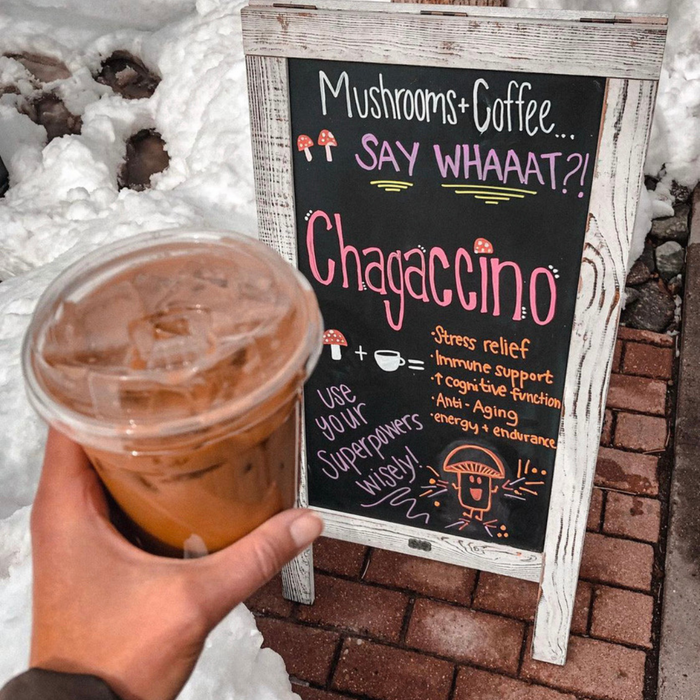 Mushrooms+Coffee...
SAY WHAAAT?!
Chagaccino
+ =
·Stress relief
·Immune support
·↑ cognitive function
·Anti-Aging
·energy + endurance
use
your
Superpowers
wisely!